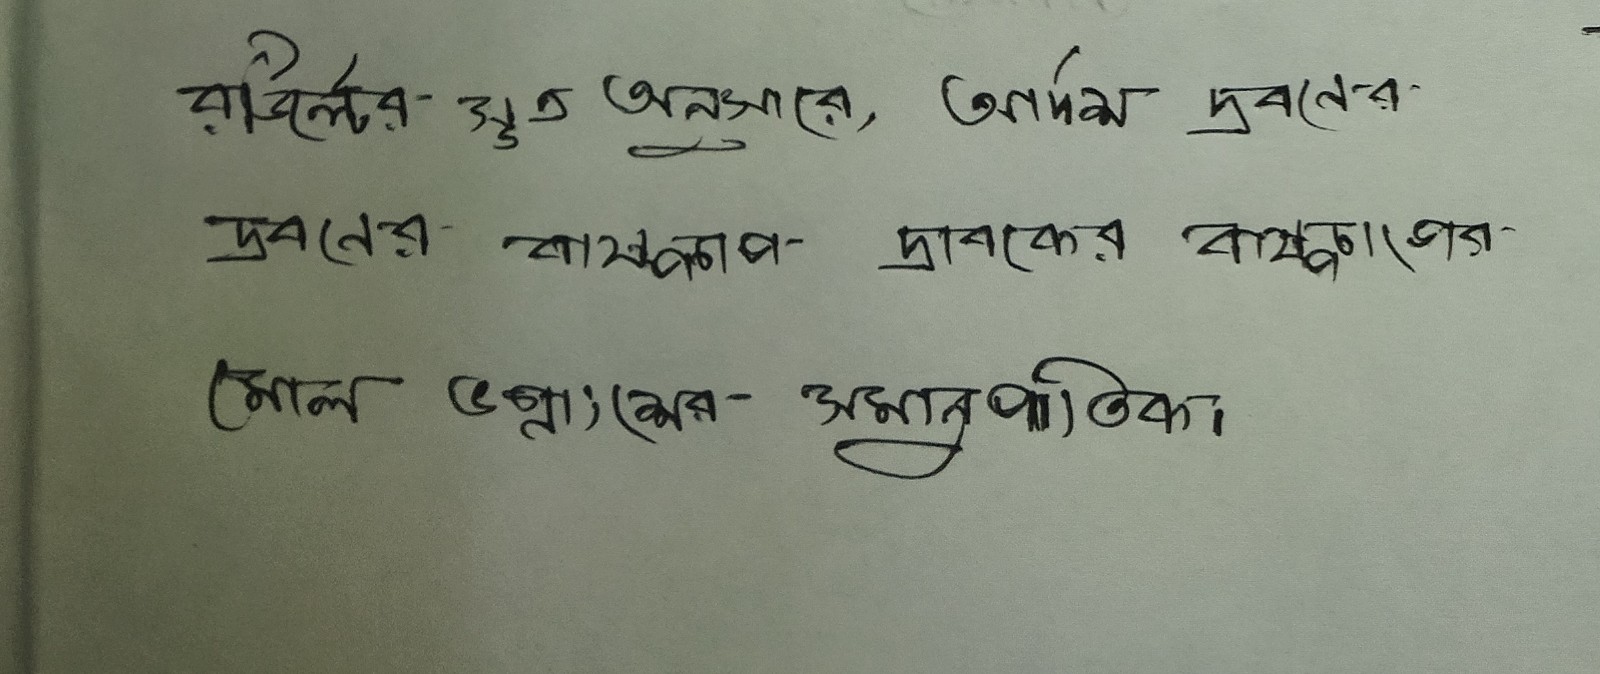 রাউল্টের সূত্র অনুসারে, আদর্শ দ্রবনের
দ্রবনের বাষ্পচাপ দ্রাবকের বাষ্পচাপের
মোল ভগ্নাংশের সমানুপাতিক।